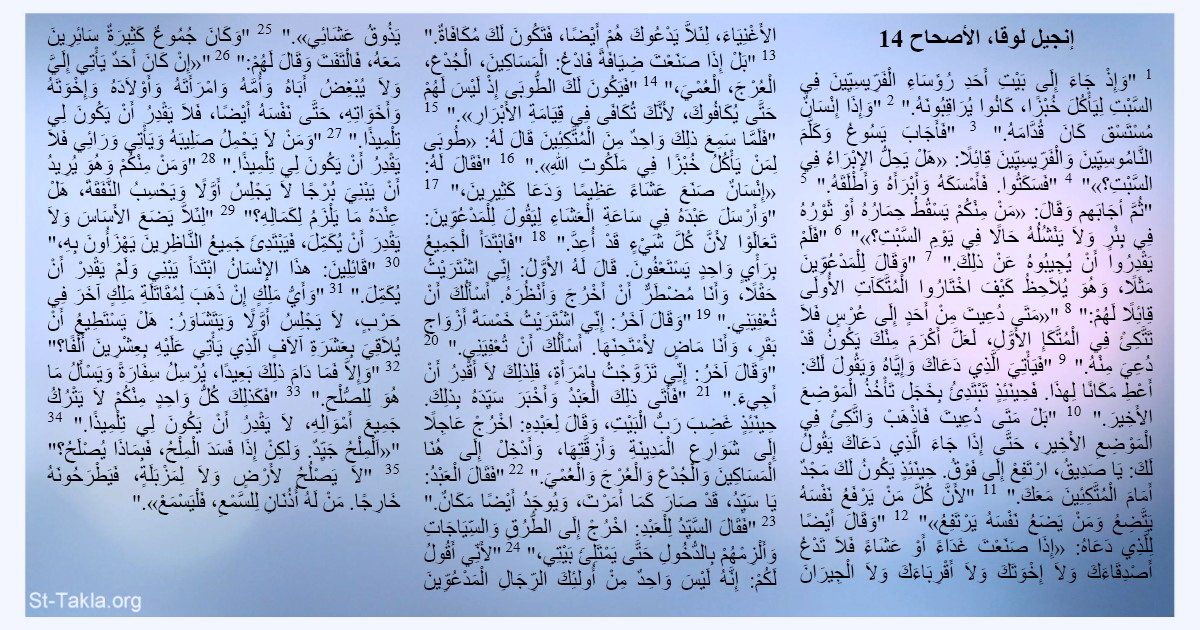 إنجيل لوقا، الأصحاح 14
1 "وَإِذْ جَاءَ إِلَى بَيْتِ أَحَدِ رُؤَسَاءِ الْفَرِّيسِيِّينَ فِي
السَّبْتِ لِيَأْكُلَ خُبْزًا، كَانُوا يُرَاقِبُونَهُ." 2 "وَإِذَا إِنْسَانٌ
مُسْتَسْق كَانَ قُدَّامَهُ." 3 "فَأَجَابَ يَسُوعُ وَكَلَّمَ
النَّامُوسِيِّينَ وَالْفَرِّيسِيِّينَ قِائِلًا: «هَلْ يَحِلُّ الإِبْرَاءُ فِي
السَّبْتِ؟»" 4 "فَسَكَتُوا. فَأَمْسَكَهُ وَأَبْرَأَهُ وَأَطْلَقَهُ." 5
"ثُمَّ أجَابَهم وَقَالَ: «مَنْ مِنْكُمْ يَسْقُطُ حِمَارُهُ أَوْ ثَوْرُهُ
فِي بِئْرٍ وَلاَ يَنْشُلُهُ حَالًا فِي يَوْمِ السَّبْتِ؟»" 6 "فَلَمْ
يَقْدِرُوا أَنْ يُجِيبُوهُ عَنْ ذلِكَ." 7 "وَقَالَ لِلْمَدْعُوِّينَ
مَثَلًا، وَهُوَ يُلاَحِظُ كَيْفَ اخْتَارُوا الْمُتَّكَآتِ الأُولَى
قِائِلًا لَهُمْ:" 8 "«مَتَى دُعِيتَ مِنْ أَحَدٍ إِلَى عُرْسٍ فَلاَ
تَتَّكِئْ فِي الْمُتَّكَإِ الأَوَّلِ، لَعَلَّ أَكْرَمَ مِنْكَ يَكُونُ قَدْ
دُعِيَ مِنْهُ." 9 "فَيَأْتِيَ الَّذِي دَعَاكَ وَإِيَّاهُ وَيَقُولَ لَكَ:
أَعْطِ مَكَانًا لِهذَا. فَحِينَئِذٍ تَبْتَدِئُ بِخَجَل تَأْخُذُ الْمَوْضِعَ
الأَخِيرَ." 10 "بَلْ مَتَى دُعِيتَ فَاذْهَبْ وَاتَّكِئْ فِي
الْمَوْضِعِ الأَخِيرِ، حَتَّى إِذَا جَاءَ الَّذِي دَعَاكَ يَقُولُ
لَكَ: يَا صَدِيقُ، ارْتَفِعْ إِلَى فَوْقُ. حِينَئِذٍ يَكُونُ لَكَ مَجْدٌ
أَمَامَ الْمُتَّكِئِينَ مَعَكَ." 11 "لأَنَّ كُلَّ مَنْ يَرْفَعُ نَفْسَهُ
يَتَّضِعُ وَمَنْ يَضَعُ نَفْسَهُ يَرْتَفِعُ»" 12 "وَقَالَ أَيْضًا
لِلَّذِي دَعَاهُ: «إِذَا صَنَعْتَ غَدَاءً أَوْ عَشَاءً فَلاَ تَدْعُ
أَصْدِقَاءَكَ وَلاَ إِخْوَتَكَ وَلاَ أَقْرِبَاءَكَ وَلاَ الْجِيرَانَ
الأَغْنِيَاءَ، لِئَلاَّ يَدْعُوكَ هُمْ أَيْضًا، فَتَكُونَ لَكَ مُكَافَاةٌ."
13 "بَلْ إِذَا صَنَعْتَ ضِيَافَةً فَادْعُ: الْمَسَاكِينَ، الْجُدْعَ،
الْعُرْجَ، الْعُمْيَ،" 14 "فَيَكُونَ لَكَ الطُّوبَى إِذْ لَيْسَ لَهُمْ
حَتَّى يُكَافُوكَ، لأَنَّكَ تُكَافَى فِي قِيَامَةِ الأَبْرَارِ»." 15
"فَلَمَّا سَمِعَ ذلِكَ وَاحِدٌ مِنَ الْمُتَّكِئِينَ قَالَ لَهُ: «طُوبَى
لِمَنْ يَأْكُلُ خُبْزًا فِي مَلَكُوتِ اللهِ»." 16 "فَقَالَ لَهُ:
«إِنْسَانٌ صَنَعَ عَشَاءً عَظِيمًا وَدَعَا كَثِيرِينَ،" 17
"وَأَرْسَلَ عَبْدَهُ فِي سَاعَةِ الْعَشَاءِ لِيَقُولَ لِلْمَدْعُوِّينَ:
تَعَالَوْا لأَنَّ كُلَّ شَيْءٍ قَدْ أُعِدَّ." 18 "فَابْتَدَأَ الْجَمِيعُ
بِرَأْيٍ وَاحِدٍ يَسْتَعْفُونَ. قَالَ لَهُ الأَوَّلُ: إِنِّي اشْتَرَيْتُ
حَقْلًا، وَأَنَا مُضْطَرٌّ أَنْ أَخْرُجَ وَأَنْظُرَهُ. أَسْأَلُكَ أَنْ
تُعْفِيَنِي." 19 "وَقَالَ آخَرُ: إِنِّي اشْتَرَيْتُ خَمْسَةَ أَزْوَاجِ
بَقَرٍ، وَأَنَا مَاضٍ لأَمْتَحِنَهَا. أَسْأَلُكَ أَنْ تُعْفِيَنِي." 20
"وَقَالَ آخَرُ: إِنِّي تَزَوَّجْتُ بِامْرَأَةٍ، فَلِذلِكَ لاَ أَقْدِرُ أَنْ
أَجِيءَ." 21 "فَأَتَى ذلِكَ الْعَبْدُ وَأَخْبَرَ سَيِّدَهُ بِذلِكَ.
حِينَئِذٍ غَضِبَ رَبُّ الْبَيْتِ، وَقَالَ لِعَبْدِهِ: اخْرُجْ عَاجِلًا
إِلَى شَوَارِعِ الْمَدِينَةِ وَأَزِقَّتِهَا، وَأَدْخِلْ إِلَى هُنَا
الْمَسَاكِينَ وَالْجُدْعَ وَالْعُرْجَ وَالْعُمْيَ." 22 "فَقَالَ الْعَبْدُ:
يَا سَيِّدُ، قَدْ صَارَ كَمَا أَمَرْتَ، وَيُوجَدُ أَيْضًا مَكَانٌ."
23 "فَقَالَ السَّيِّدُ لِلْعَبْدِ: اخْرُجْ إِلَى الطُّرُقِ وَالسِّيَاجَاتِ
وَأَلْزِمْهُمْ بِالدُّخُولِ حَتَّى يَمْتَلِئَ بَيْتِي،" 24 "لأَنِّي أَقُولُ
لَكُمْ: إِنَّهُ لَيْسَ وَاحِدٌ مِنْ أُولئِكَ الرِّجَالِ الْمَدْعُوِّينَ
يَذُوقُ عَشَائِي»." 25 "وَكَانَ جُمُوعٌ كَثِيرَةٌ سَائِرِينَ
مَعَهُ، فَالْتَفَتَ وَقَالَ لَهُمْ:" 26 "«إِنْ كَانَ أَحَدٌ يَأْتِي إِلَيَّ
وَلاَ يُبْغِضُ أَبَاهُ وَأُمَّهُ وَامْرَأَتَهُ وَأَوْلاَدَهُ وَإِخْوَتَهُ
وَأَخَوَاتِهِ، حَتَّى نَفْسَهُ أَيْضًا، فَلاَ يَقْدِرُ أَنْ يَكُونَ لِي
تِلْمِيذًا." 27 "وَمَنْ لاَ يَحْمِلُ صَلِيبَهُ وَيَأْتِي وَرَائِي فَلاَ
يَقْدِرُ أَنْ يَكُونَ لِي تِلْمِيذًا." 28 "وَمَنْ مِنْكُمْ وَهُوَ يُرِيدُ
أَنْ يَبْنِيَ بُرْجًا لاَ يَجْلِسُ أَوَّلًا وَيَحْسِبُ النَّفَقَةَ، هَلْ
عِنْدَهُ مَا يَلْزَمُ لِكَمَالِهِ؟" 29 "لِئَلاَّ يَضَعَ الأَسَاسَ وَلاَ
يَقْدِرَ أَنْ يُكَمِّلَ، فَيَبْتَدِئَ جَمِيعُ النَّاظِرِينَ يَهْزَأُونَ بِهِ،"
30 "قَائِلِينَ: هذَا الإِنْسَانُ ابْتَدَأَ يَبْنِي وَلَمْ يَقْدِرْ أَنْ
يُكَمِّلَ." 31 "وَأَيُّ مَلِكٍ إِنْ ذَهَبَ لِمُقَاتَلَةِ مَلِكٍ آخَرَ فِي
حَرْبٍ، لاَ يَجْلِسُ أَوَّلًا وَيَتَشَاوَرُ: هَلْ يَسْتَطِيعُ أَنْ
يُلاَقِيَ بِعَشَرَةِ آلاَفٍ الَّذِي يَأْتِي عَلَيْهِ بِعِشْرِينَ أَلْفًا؟"
32 "وَإِلاَّ فَمَا دَامَ ذلِكَ بَعِيدًا، يُرْسِلُ سِفَارَةً وَيَسْأَلُ مَا
هُوَ لِلصُّلْحِ." 33 "فَكَذلِكَ كُلُّ وَاحِدٍ مِنْكُمْ لاَ يَتْرُكُ
جَمِيعَ أَمْوَالِهِ، لاَ يَقْدِرُ أَنْ يَكُونَ لِي تِلْمِيذًا." 34
"«اَلْمِلْحُ جَيِّدٌ. وَلكِنْ إِذَا فَسَدَ الْمِلْحُ، فَبِمَاذَا يُصْلَحُ؟"
35 "لاَ يَصْلُحُ لأَرْضٍ وَلاَ لِمَزْبَلَةٍ، فَيَطْرَحُونَهُ
خَارِجًا. مَنْ لَهُ أُذُنَانِ لِلسَّمْعِ، فَلْيَسْمَعْ»."
St-Takla.org